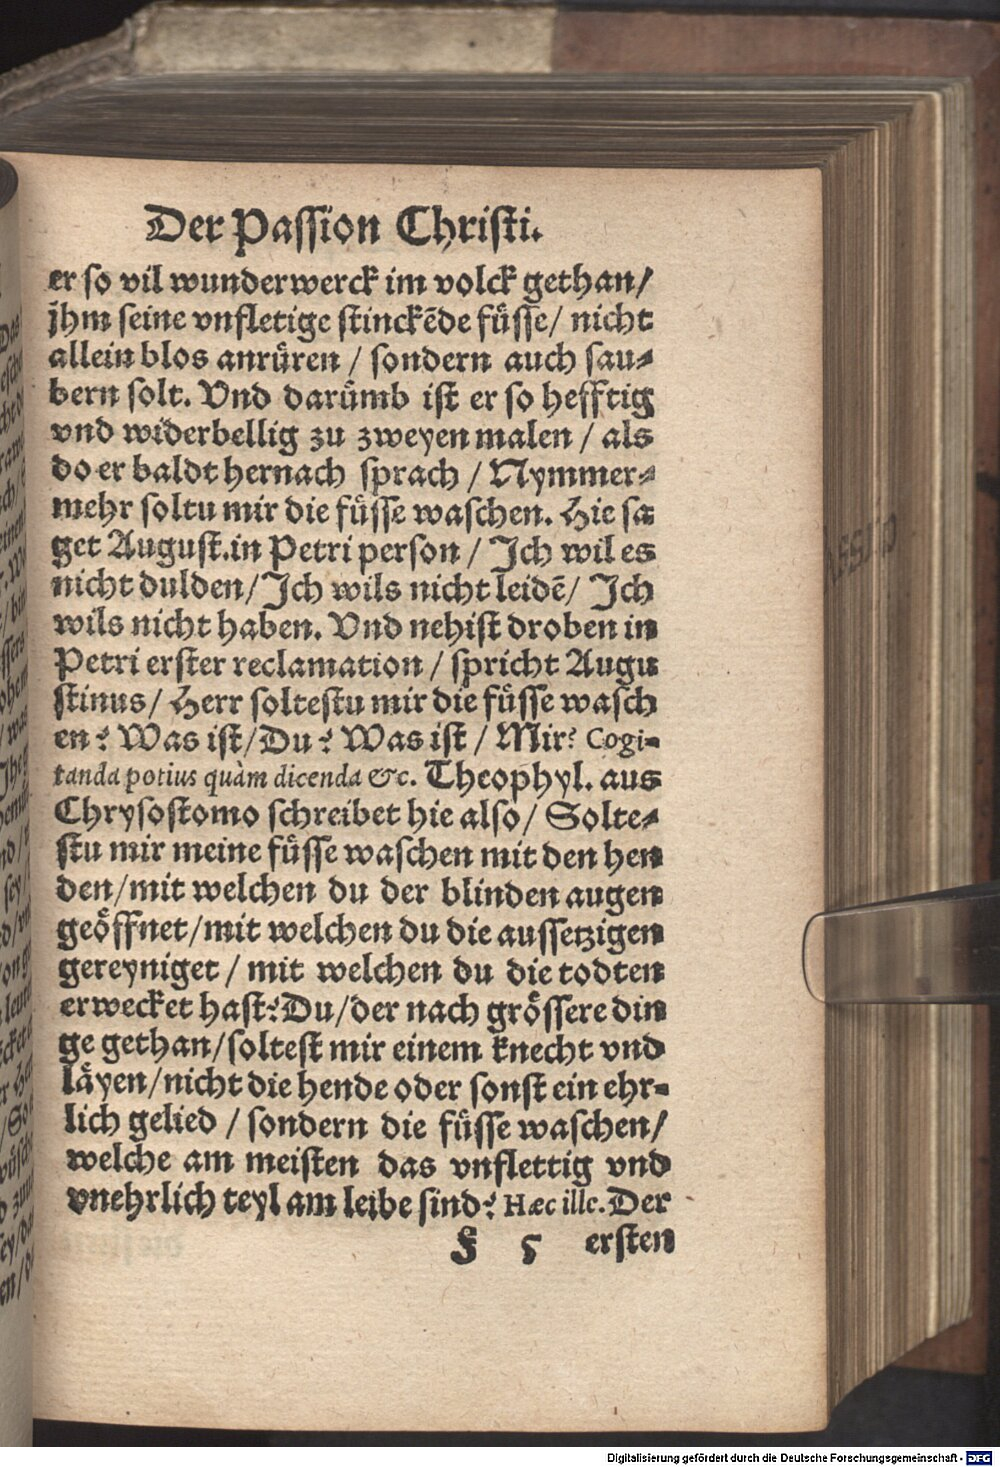 Der Passion Christi.
er so vil wunderwerck im volck gethan/
jhm seine vnfletige stinckēde füsse/ nicht
allein blos anrüren / sondern auch sau⸗
bern solt. Vnd darümb ist er so hefftig
vnd widerbellig zu zweyen malen / als
do er baldt hernach sprach / Nymmer⸗
mehr soltu mir die füsse waschen. Hie sa
get August.in Petri person / Ich wil es
nicht dulden/Ich wils nicht leidē/ Ich
wils nicht haben. Vnd nehist droben in
Petri erster reclamation / spricht Augu
stinus/ Herr soltestu mir die füsse wasch
en? Was ist/Du? Was ist / Mir? Cogi-
tanda potius quàm dicenda &c. Theophyl. aus
Chrysostomo schreibet hie also/ Solte⸗
stu mir meine füsse waschen mit den hen
den/mit welchen du der blinden augen
geöffnet/mit welchen du die aussetzigen
gereyniget / mit welchen du die todten
erwecket hast?Du/der nach grössere din
ge gethan/soltest mir einem knecht vnd
läyen/nicht die hende oder sonst ein ehr⸗
lich gelied / sondern die füsse waschen/
welche am meisten das vnflettig vnd
vnehrlich teyl am leibe sind? Hæc ille. Der
§ 5 ersten
Digitalisierung gefördert durch die Deutsche Forschungsgemeinschaft - DFG